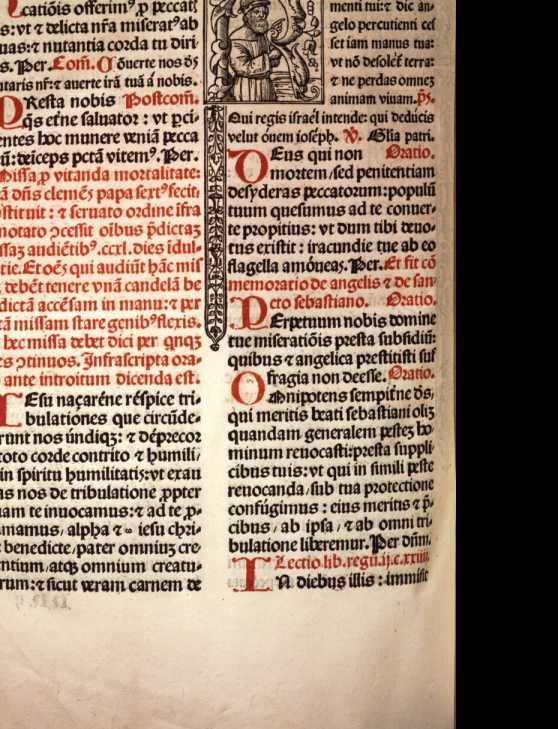 catiōis offerim⁹ ꝓ peccat͛
s: vt ⁊ delicta nr̄a miserat⁹ab
uas: ⁊ nutantia corda tu diri
s. Per. Com̄. Cōuerte nos ds̄
utaris nr̄: ⁊ auerte irā tuā á nobis.
PResta nobis Postcom̄.
qs̄ etne saluator: vt ꝑci-
entes hoc munere veniā pecca
ū: deiceps pctā vitem⁹. Per.
Missa ꝓ vitanda mortalitate:
ā dn̄s clemēs papa sext⁹ fecit
ōstituit: ⁊ seruato ordine īfra
notato ꝯcessit oībus p̄dictaʒ
ssaʒ audiētib⁹. ccxl. dies īdul-
tie. Et oēs qui audiūt hāc mis
ʒ debēt tenere vnā candelā be
dictā accēsam in manu: ⁊ per
tā missam stare genib⁹ flexis.
hec missa debet dici per qnqʒ
es ꝯtinuos. Infrascripta ora-
ante introitum dicenda est.
IEsu naçaréne réspice tri-
bulationes que circūde-
runt nos úndiqʒ: ⁊ déprecor
toto corde contrito ⁊ humili/
in spiritu humilitatis: vt exau
as nos de tribulatione ꝓpter
uam te inuocamus: ⁊ ad te ꝓ-
mamus/ alpha ⁊ ∞ iesu chri-
benedicte/pater omniuʒ cre
ntium/atqʒ omnium creatu-
rum: ⁊ sicut veram carnem de
menti tui: ⁊ dic an-
gelo percutienti ces
set iam manus tua:
vt nō desolet͛ terra:
⁊ ne perdas omneʒ
animam viuam. p̄s.
Qui regis israél intende: qui dedúcis
velut óuem ióseph. V. Glia patri.
DEus qui non Oratio.
mortem/sed penitentiam
desyderas peccatorum: populū
tuum quesumus ad te conuer-
te propitius: vt dum tibi deuo-
tus exístit: iracundie tue ab eo
flagella amóueas. Per. Et fit cō
memoratio de angelis ⁊ de san-
cto sebastiano. Oratio.
PErpetuum nobis domine
tue miseratiōis presta subsidiū:
quibus ⁊ angelica prestitisti suf
fragia non deesse. Oratio.
OMnipotens sempitne ds̄,
qui meritis beati sebastiani oliʒ
quandam generalem pesteʒ ho-
minum reuocasti: presta suppli
cibus tuis: vt qui in simili peste
reuocanda/sub tua protectione
confúgimus: eius meritis ⁊ p̄-
cibus/ab ipsa/⁊ ab omni tri-
bulatione liberemur. Per dn̄m.
Lectio lib. regū. ij. c. xxiiii.
IN diebus illis: immisit